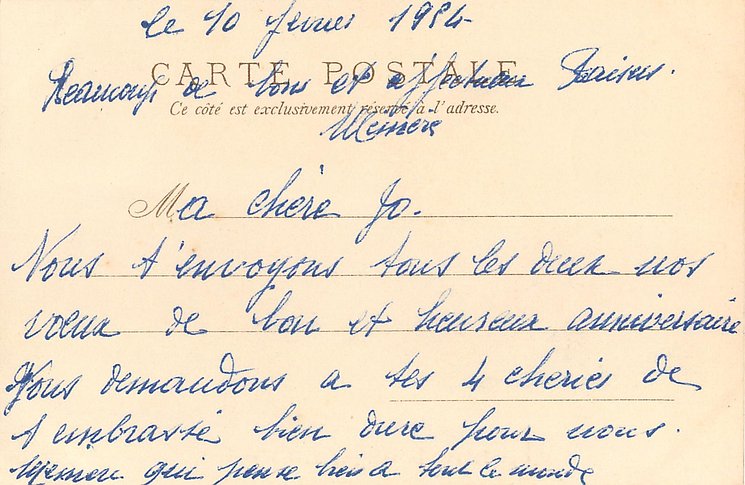 le 10 février 1984
CARTE POSTALE
Beaucoup de bons et affectueux Baisers.
Ce côté est exclusivement réservé à l'adresse.
Mémère
Ma chère Jo.
Nous t'envoyons tous les deux nos
vœux de bon et heureux anniversaire
Nous demandons a tes 4 cheries de
t embrassé bien dure pour nous.
Mémère qui pense bien a tout le monde